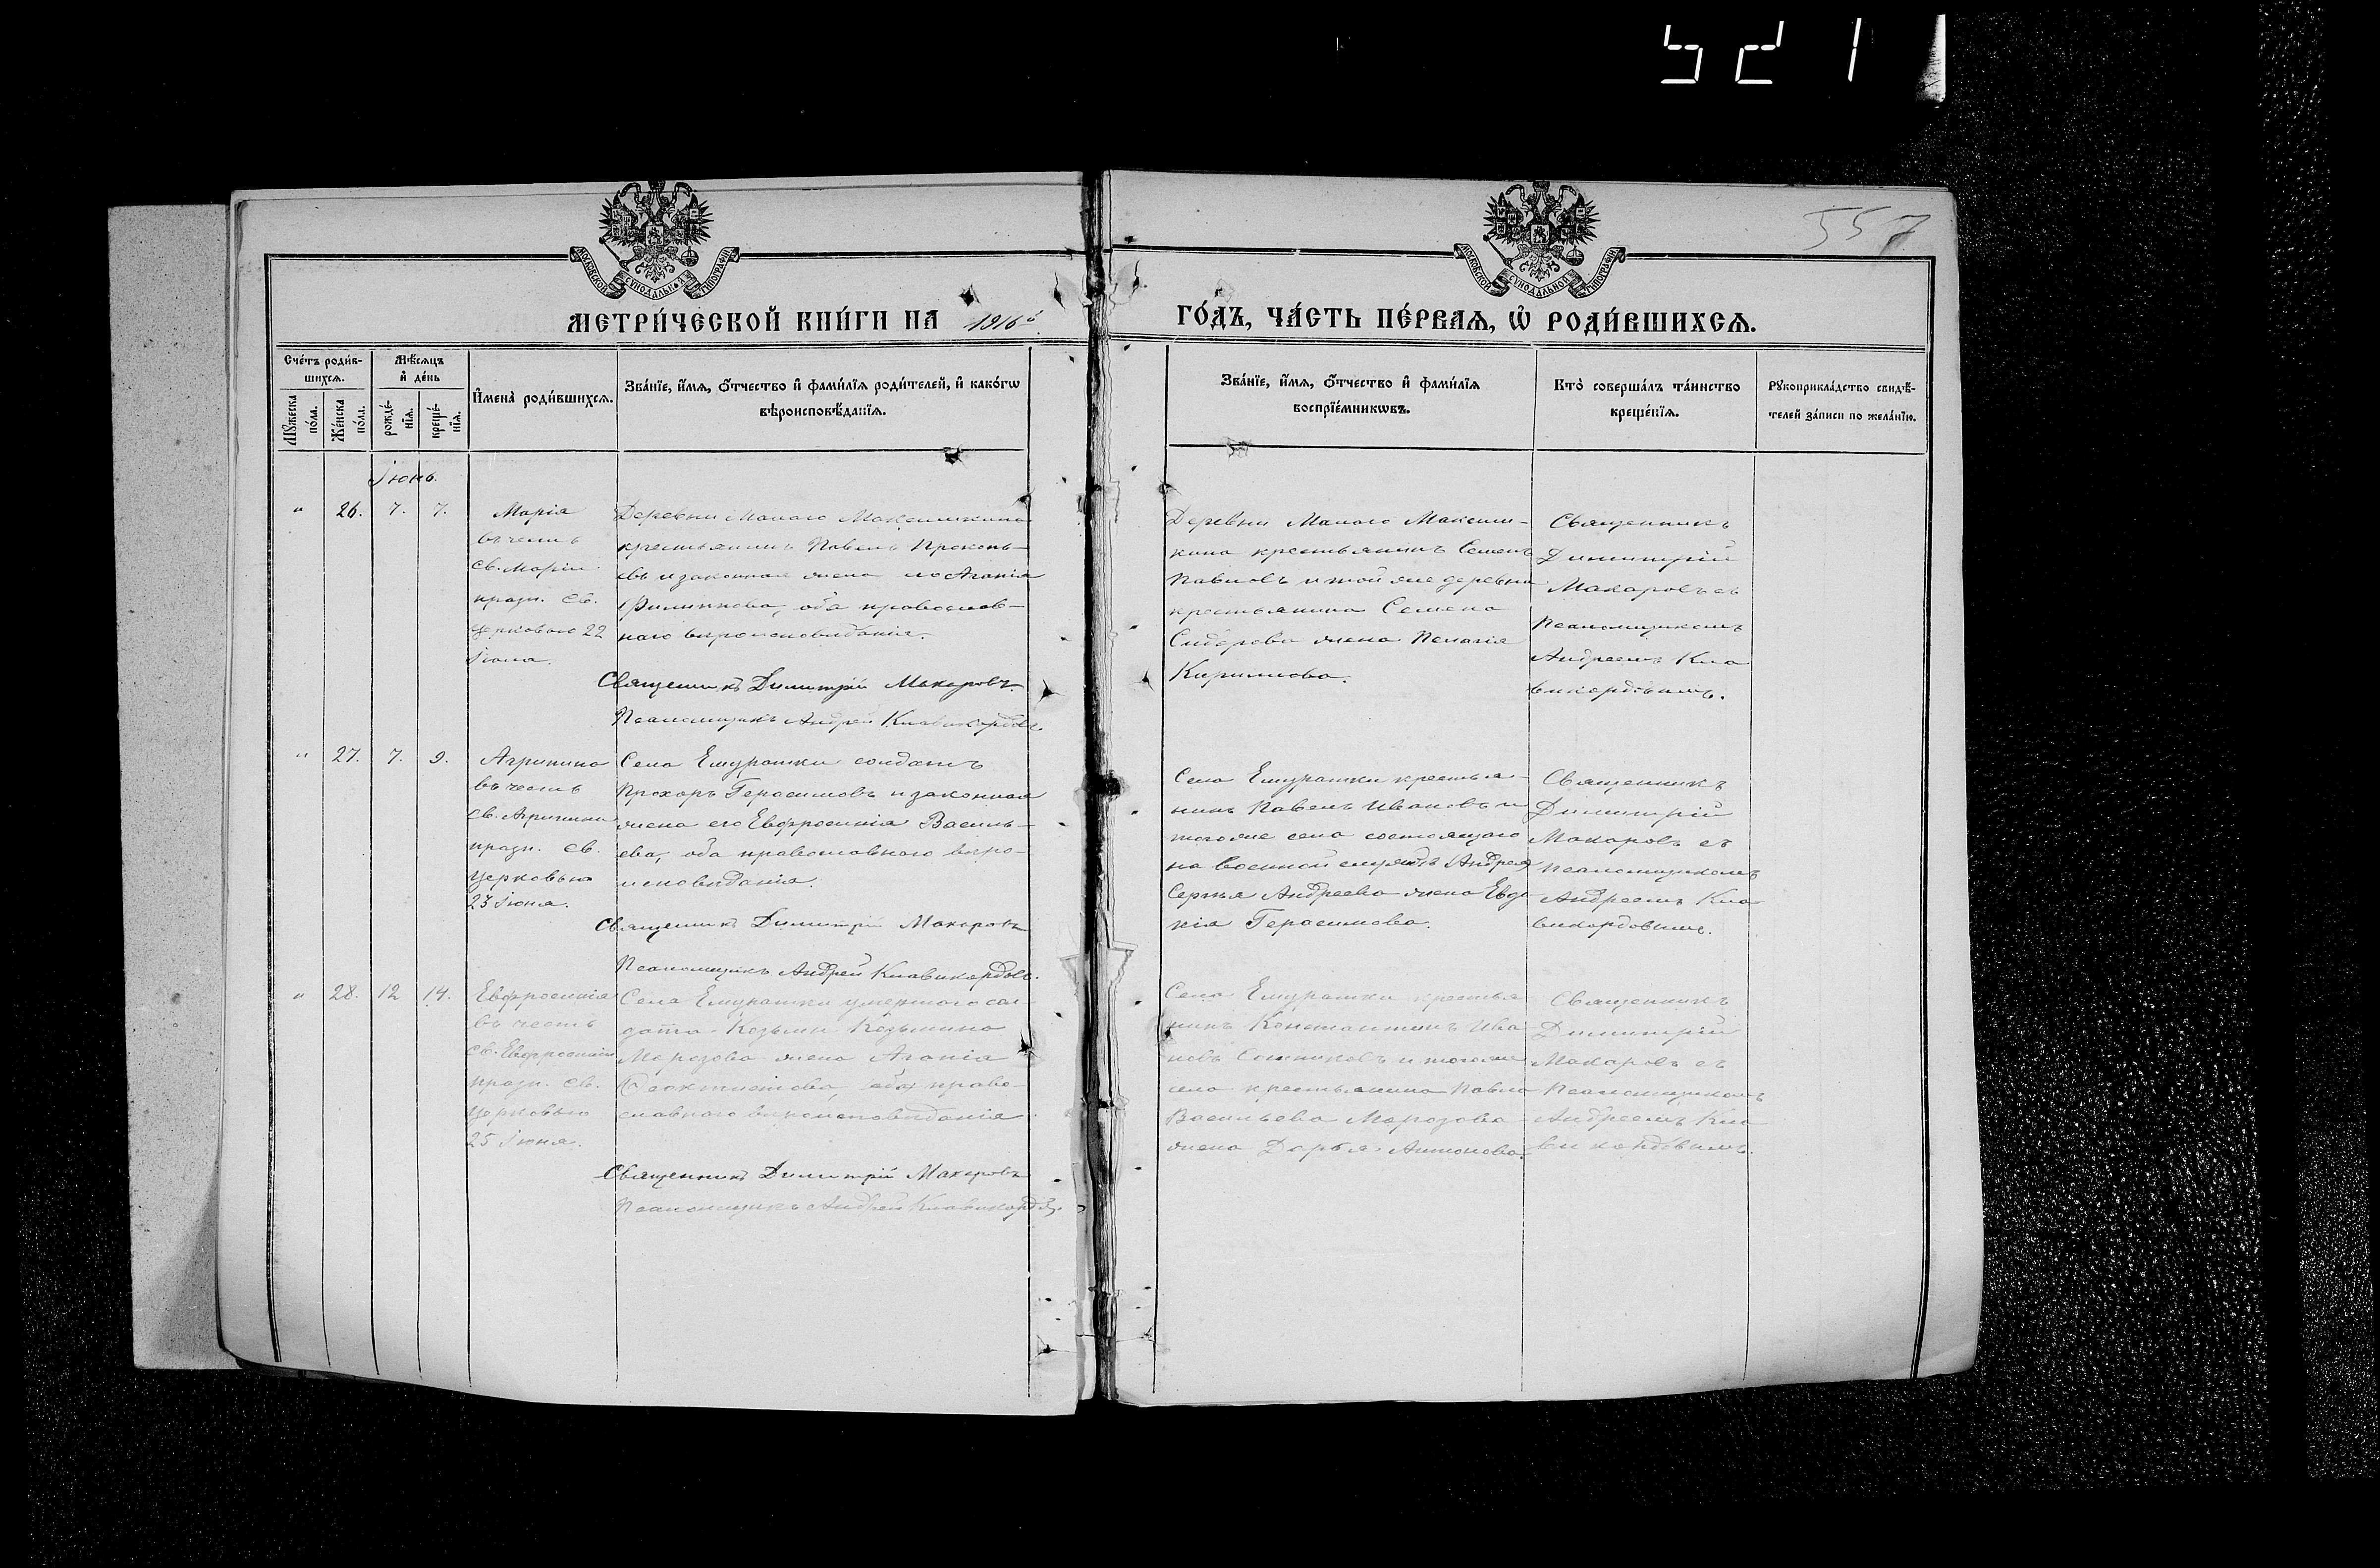 521
557
МОСКОВСКОЙ СѴНОДАЛЬНОЙ ТИПОГРАФІИ
МОСКОВСКОЙ СѴНОДАЛЬНОЙ ТИПОГРАФІИ
МЕТРИ́ЧЕСКОЙ КНИ́ГИ НА 1916й ГО́ДЪ, ЧА́СТЬ ПЕ́РВАЯ, Ѡ҆ РОДИ́ВШИХСЯ.
Сче́тъ роди́в-
шихся.
Мꙋ́жеска по́ла.
Же́нска по́ла.
Мѣ́сяцъ
и҆ де́нь
рожде́-
нїя.
креще́-
нїя.
И҆мена̀ роди́вшихся.
Зва́нїе, и҆́мя, ѻ҆́тчество и҆ фами́лїя роди́телей, и҆ како́гѡ
вѣроисповѣ́данїя.
Зва́нїе, и҆́мя, ѻ҆́тчество и҆ фами́лїя
воспрїе́мникѡвъ.
Кто̀ соверша́лъ та́инство
креще́нїя.
Рꙋкоприкла́дство свидѣ́-
телей за́писи по жела́нїю.
Іюнь.
" 26. 7. 7.
Марія
въ честь
св. Маріи
празн. св.
церковью 22
Іюня.
Деревни Малаго Максимкина
крестьянинъ Павелъ Прокопь-
евъ и законная жена его Агапія
Филиппова, оба православ-
наго вѣроисповѣданія.
Священникъ Димитрій Макаровъ.
Псаломщикъ Андрей Клавикордовъ
Деревни Малаго Максим-
кина крестьянинъ Семенъ
Павловъ и той же деревни
крестьянина Семена
Сидорова жена Пелагія
Кириллова.
Священникъ
Димитрій
Макаровъ съ
Псаломщикомъ
Андреемъ Кла
викордовымъ.
" 27. 7. 9.
Агрипина
въ честь
св. Агрипины
празн. св.
церковью
23 Іюня.
Села Емурашки солдатъ
Прохоръ Герасимовъ и законная
жена его Евфросинія Василь-
ева, оба православнаго вѣро-
исповѣданія.
Священникъ Димитрій Макаровъ
Псаломщикъ Андрей Клавикордовъ.
Села Емурашки крестья-
нинъ Павелъ Ивановъ и
того же села состоящаго
на военной службѣ Андрея
Сергѣя Андреева жена Евдо
кія Герасимова.
Священникъ
Димитрій
Макаровъ съ
псаломщикомъ
Андреемъ Кла
викордовымъ.
" 28. 12 14.
Евфросинія
въ честь
св. Евфросиніи
празн. св.
церковью
25 Іюня.
Села Емурашки умершаго сол-
дата Козьмы Козьмина
Морозова жена Агапія
Ѳеоктистова, оба право-
славнаго вѣроисповѣданія
Священникъ Димитрій Макаровъ
Псаломщикъ Андрей Клавикордовъ.
Села Емурашки крестья
нинъ Константинъ Ива
новъ и того же
села крестьянина Павла
Васильева Морозова
жена Дарья Антонова.
Священникъ
Димитрій
Макаровъ съ
Псаломщикомъ
Андреемъ Кла
викордовымъ.